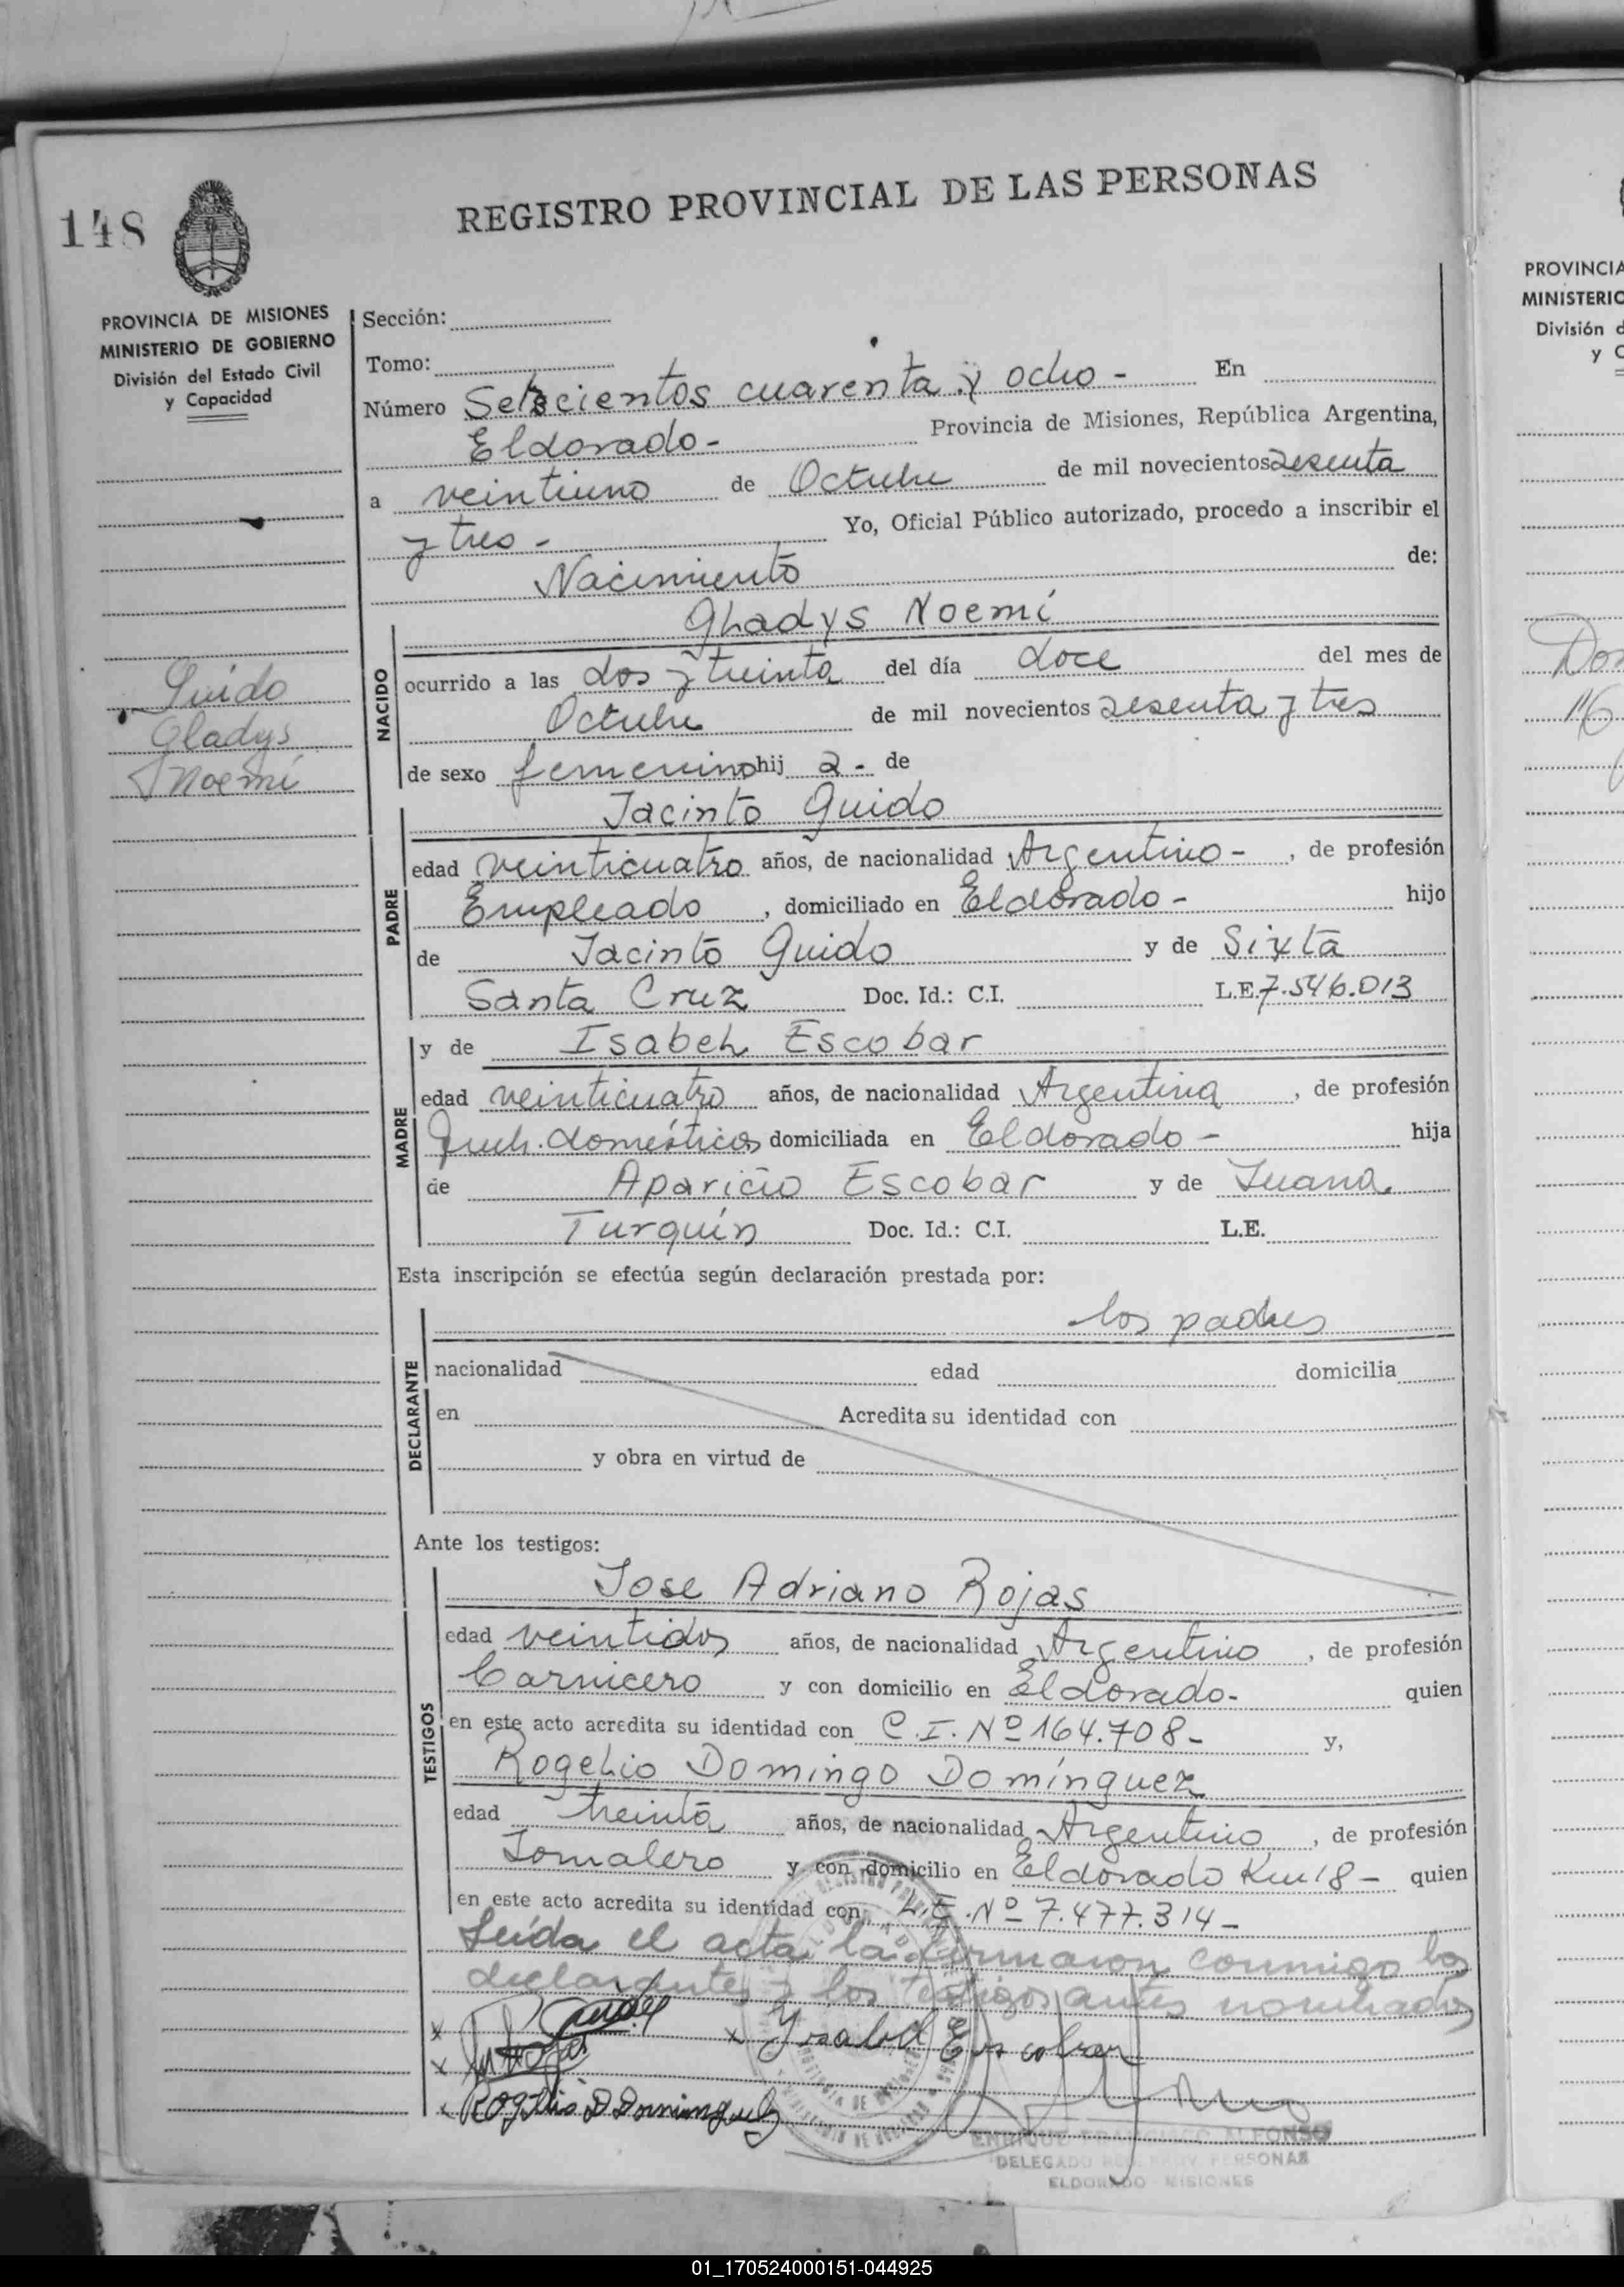 REGISTRO PROVINCIAL DE LAS PERSONAS
148
PROVINCIA DE MISIONES
MINISTERIO DE GOBIERNO
División del Estado Civil
y Capacidad
Guido
Gladys
Noemí
Sección:
Tomo:
Número Setecientos cuarenta y ocho - En
Eldorado - Provincia de Misiones, República Argentina,
a veintiuno de Octubre de mil novecientos sesenta
y tres - Yo, Oficial Público autorizado, procedo a inscribir el
Nacimiento de:
NACIDO
Gladys Noemí
ocurrido a las dos y treinta del día doce del mes de
Octubre de mil novecientos sesenta y tres
de sexo femenino hij a - de
PADRE
Jacinto Guido
edad veinticuatro años, de nacionalidad Argentino - , de profesión
Empleado , domiciliado en Eldorado - hijo
de Jacinto Guido y de Sixta
Santa Cruz Doc. Id.: C.I. L.E. 7.546.013
MADRE
y de Isabel Escobar
edad veinticuatro años, de nacionalidad Argentina , de profesión
Queh. domésticos domiciliada en Eldorado - hija
de Aparicio Escobar y de Juana
Turquín Doc. Id.: C.I. L.E.
Esta inscripción se efectúa según declaración prestada por:
DECLARANTE
los padres
nacionalidad edad domicilia
en Acredita su identidad con
y obra en virtud de
Ante los testigos:
TESTIGOS
Jose Adriano Rojas
edad veintidos años, de nacionalidad Argentino , de profesión
Carnicero y con domicilio en Eldorado - quien
en este acto acredita su identidad con C.I. Nº 164.708 - y,
Rogelio Domingo Domínguez
edad treinta años, de nacionalidad Argentino , de profesión
Jornalero y con domicilio en Eldorado Km 18 - quien
en este acto acredita su identidad con L.E. Nº 7.477.314 -
Leída el acta la firmaron conmigo los
declarantes y los testigos antes nombrados
x x Ysabel Escobar
x
x Rogelio D Dominguez
ENRIQUE FRANCISCO ALFONSO
DELEGADO REG. PROV. PERSONAS
ELDORADO - MISIONES
PROVINCIA
MINISTERIO
División d
y C
Do
16
01_170524000151-044925